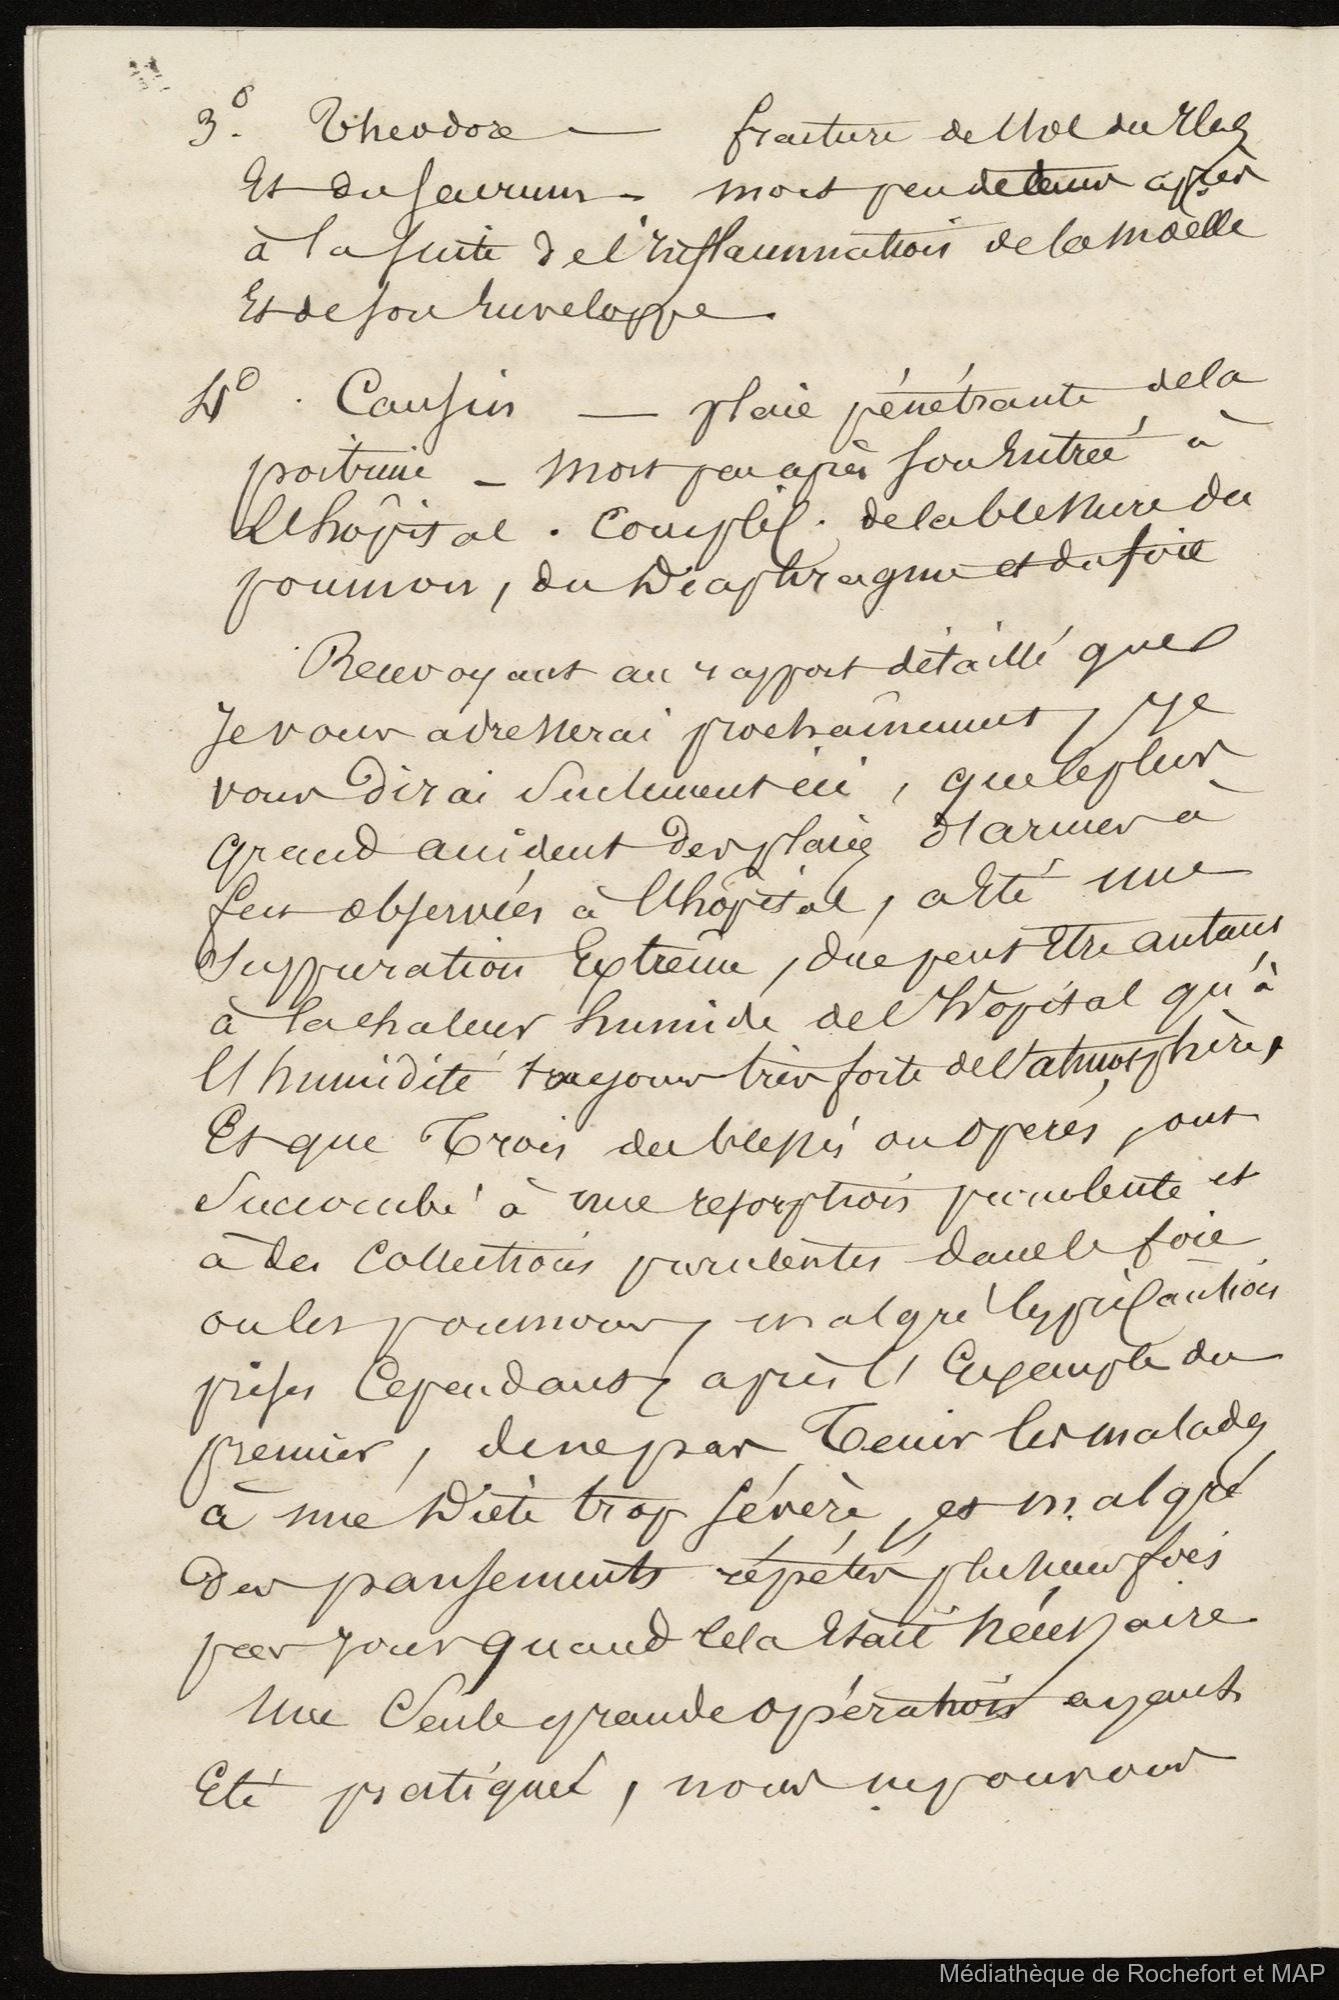 3º. Theodore — fracture de l'Os des Iles
Et du Sacrum – mort peu de temps après
à la suite de l'inflammation de la moëlle
Et de son Enveloppe.
4º. Causin — plaie pénétrante de la
poitrine – mort peu après son Entrée à
L'hôpital. Compliq. de la blessure du
poumon, du Diaphragme et du foie
Renvoyant au rapport détaillé que
Je vous adresserai prochainement, Je
vous Dirai Seulement ici, que le plus
grand accident des plaies d'armes à
feu observées à l'hôpital, a Eté une
Suppuration Extrême, due peut Etre autant
à la chaleur humide de l'hôpital qu'à
l'humidité toujours très forte de l'atmosphère,
Et que Trois des blessés ou opérés, ont
Succombé à une resorption purulente et
à des Collections purulentes dans le foie
ou les poumons, malgré les précautions
prises Cependant, après l'Exemple du
premier, de ne pas Tenir les malades
à une Diète trop Sévère, et malgré
Des pansements répétés plusieurs fois
par Jour quand Cela Etait nécessaire
Une Seule grande opération ayant
Eté pratiquée, nous ne pouvons
Médiathèque de Rochefort et MAP